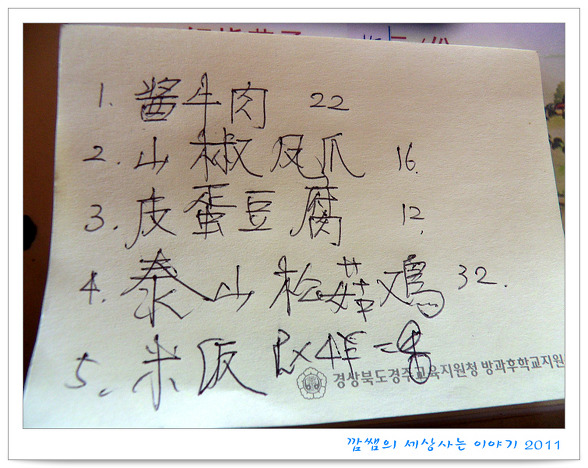 1. 酱牛肉 22
2. 山椒凤爪 16
3. 皮蛋豆腐 12
4. 泰山松菇鸡 32.
5. 米饭 2×4=8
경상북도경주교육지원청 방과후학교지원
깜쌤의 세상사는 이야기 2011